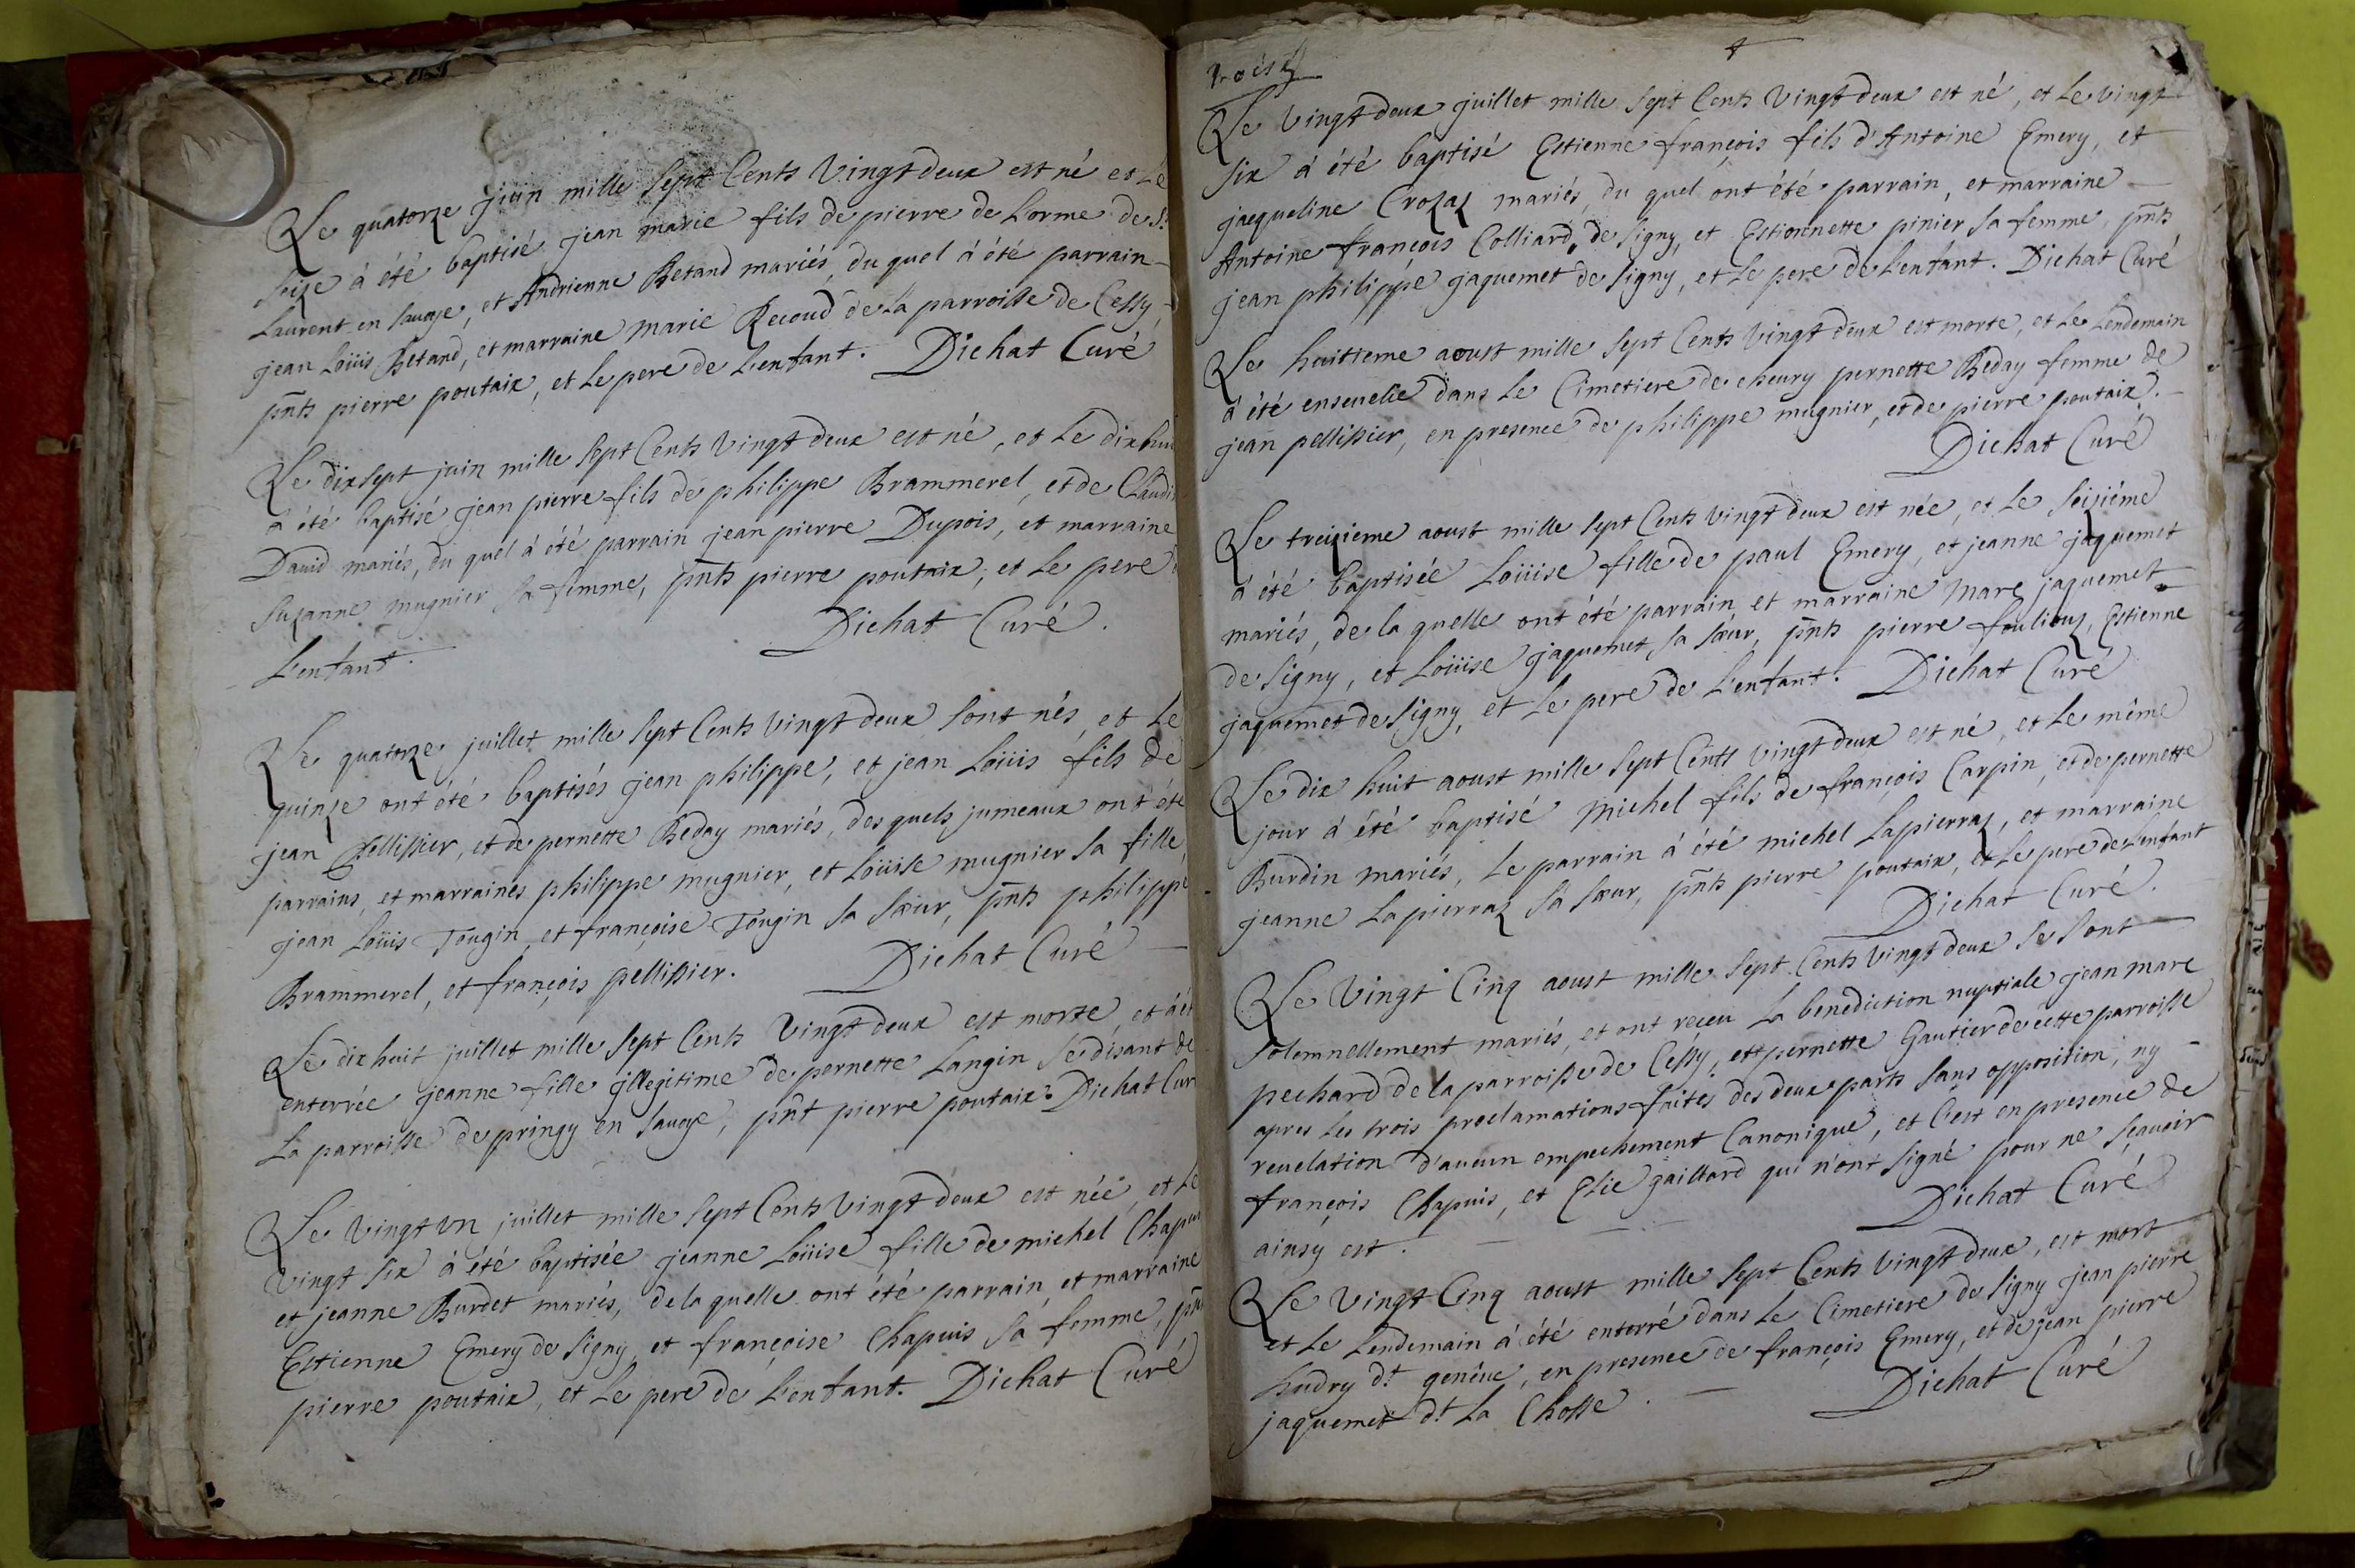 Le quatorze juin mille sept Cents Vingt deux est né et Le
seize à été baptisé jean marie fils de pierre de Lorme de St
Laurent en Savoye, et Andrienne Betand mariés, du quel à été parrain
jean Loüis Betand, et marraine marie Recoud de La parroisse de Cessy,
pnts pierre poutaix, et Le pere de L'enfant. Dichat Curé
Le dix sept juin mille sept Cents Vingt deux est né, et Le dix hui
à été baptisé jean pierre fils de philippe Brammerel, et de Claudi
David mariés, du quel à été parrain jean pierre Dupois, et marraine
Suzanne mugnier sa femme, pnts pierre poutaix, et Le pere d
L'enfant. Dichat Curé.
Le quatorze juillet mille sept Cents Vingt deux sont nés, et Le
quinze ont été baptisés jean philippe, et jean Loüis fils de
jean Pellissier, et de pernette Beday mariés, des quels jumeaux ont été
parrains, et marraines philippe mugnier, et Loüise mugnier sa fille,
jean Loüis Tougin, et françoise Tougin sa sœur, pnts philippe
Brammerel, et françois pellissier. Dichat Curé
Le dix huit juillet mille sept Cents Vingt deux est morte, et à ét
enterrée jeanne fille jllegitime de pernette Langin se disant de
La parroisse de pringy en Savoye, pnt pierre poutaix. Dichat Cur
Le Vingt vn juillet mille sept Cents Vingt deux est née, et Le
Vingt six à été baptisée jeanne Loüise fille de michel Chapui
et jeanne Burdet mariés, de la quelle ont été parrain, et marraine
Estienne Emery de Signy, et françoise Chapuis sa femme, pnts
pierre poutaix, et Le pere de L'enfant. Dichat Curé
Le Vingt deux juillet mille sept Cents Vingt deux est né, et Le vingt
six à été baptisé Estienne françois fils d'Antoine Emery, et
jacqueline Crozaz mariés, du quel ont été parrain, et marraine
Antoine françois Colliard, de Signy, et Estionnette pinier sa femme, pnts
jean philippe jaquemet de Signy, et Le pere de L'enfant. Dichat Curé
Le huitieme aoust mille sept Cents Vingt deux est morte, et Le Lendemain
à été enseuelie dans Le Cimetiere de cheury pernette Beday femme de
jean pellissier, en presence de philippe mugnier, et de pierre poutaix.
Dichat Curé
Le treizieme aoust mille sept Cents Vingt deux est née, et Le seizieme
à été baptisée Loüise fille de paul Emery, et jeanne jaquemet
mariés, de la quelle ont été parrain, et marraine Marc jaquemet
de Signy, et Loüise jaquemet, sa sœur, pnts pierre fouliouz, Estienne
jaquemet de Signy, et Le pere de L'enfant. Dichat Curé
Le dix huit aoust mille sept Cents Vingt deux est né, et Le même
jour à été baptisé Michel fils de françois Carpin, et de pernette
Burdin mariés, Le parrain à été michel Lapierraz, et marraine
jeanne Lapierraz sa sœur, pnts pierre poutaix, et Le pere de L'enfant
Dichat Curé.
Le Vingt Cinq aoust mille sept Cents Vingt deux se sont
solemnellement mariés, et ont receu La benediction nuptiale jean marc
pechard de la parroisse de Cessy, et pernette Gautier de cette parroisse
apres Les trois proclamations faites des deux parts sans opposition, ny
reuelation d'aucun empechement Canonique, et C'est en presence de
françois Chapuis, et Elie gaillard qui n'ont signé pour ne sçauoir
ainsy est. Dichat Curé
Le Vingt Cinq aoust mille sept Cents Vingt deux, est mort
et Le Lendemain à été enterré dans Le Cimetiere de Signy jean pierre
hudry dt genêue, en presence de françois Emery, et de jean pierre
jaquemet dt La Chosse. Dichat Curé